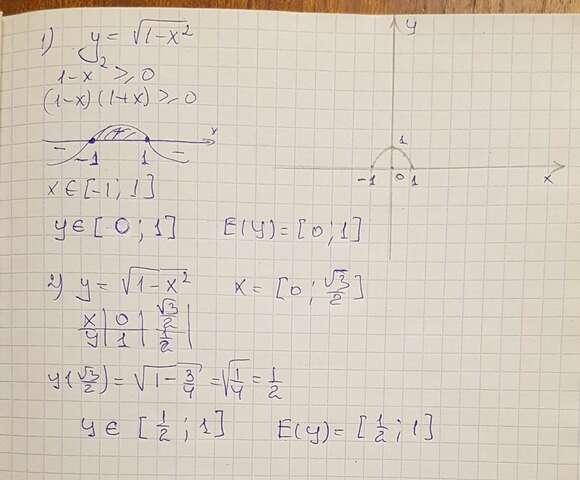 1) y = √(1-x²)
1-x² ≥ 0
(1-x)(1+x) ≥ 0
x
- + -
-1 1
x ∈ [-1; 1]
y ∈ [0; 1] E(y) = [0; 1]
y
1
-1 0 1 x
2) y = √(1-x²) x = [0; √3/2]
x | 0 | √3/2 |
y | 1 | 1/2 |
y(√3/2) = √(1-3/4) = √(1/4) = 1/2
y ∈ [1/2; 1] E(y) = [1/2; 1]